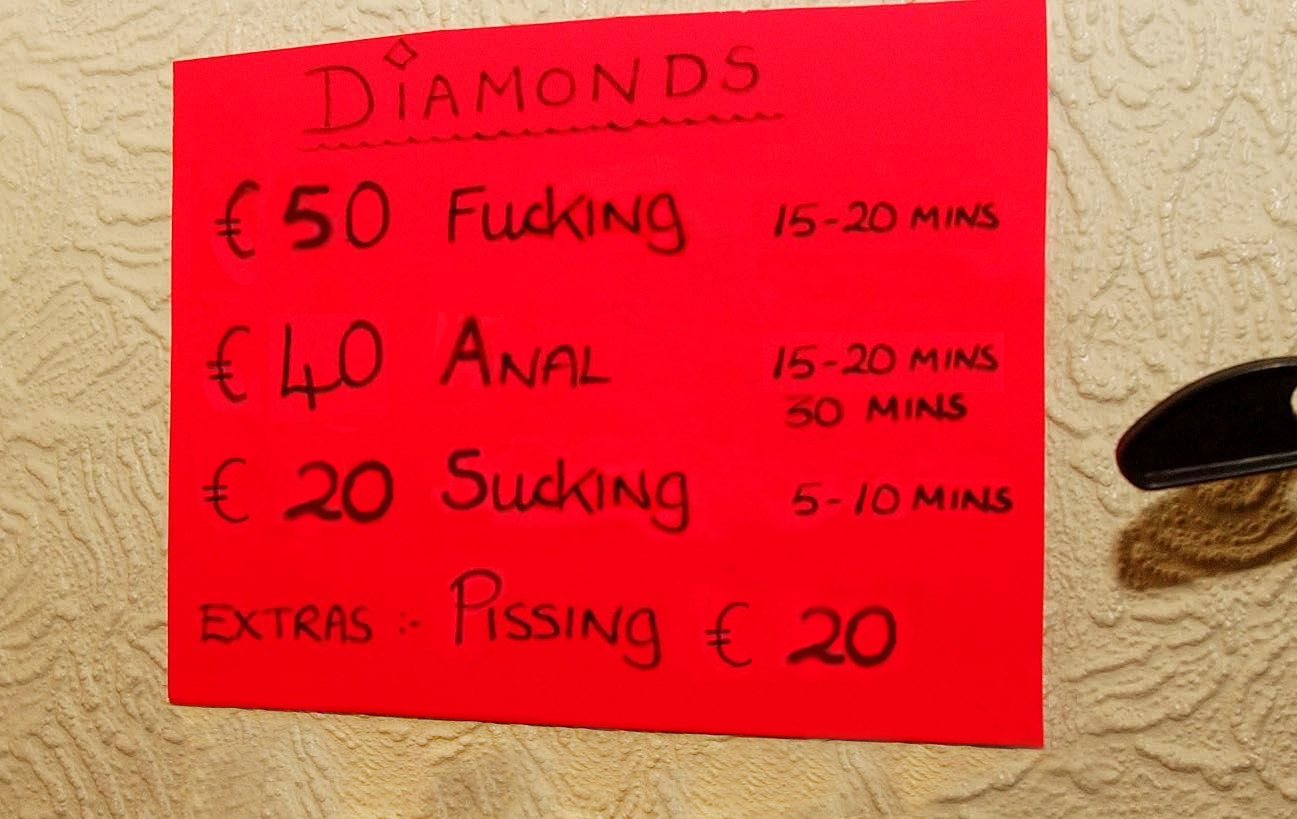 DiAMONDS
€ 50 FuckING 15-20 MINS
€ 40 ANAL 15-20 MINS
30 MINS
€ 20 SuckING 5-10 MINS
EXTRAS :- PISSING € 20